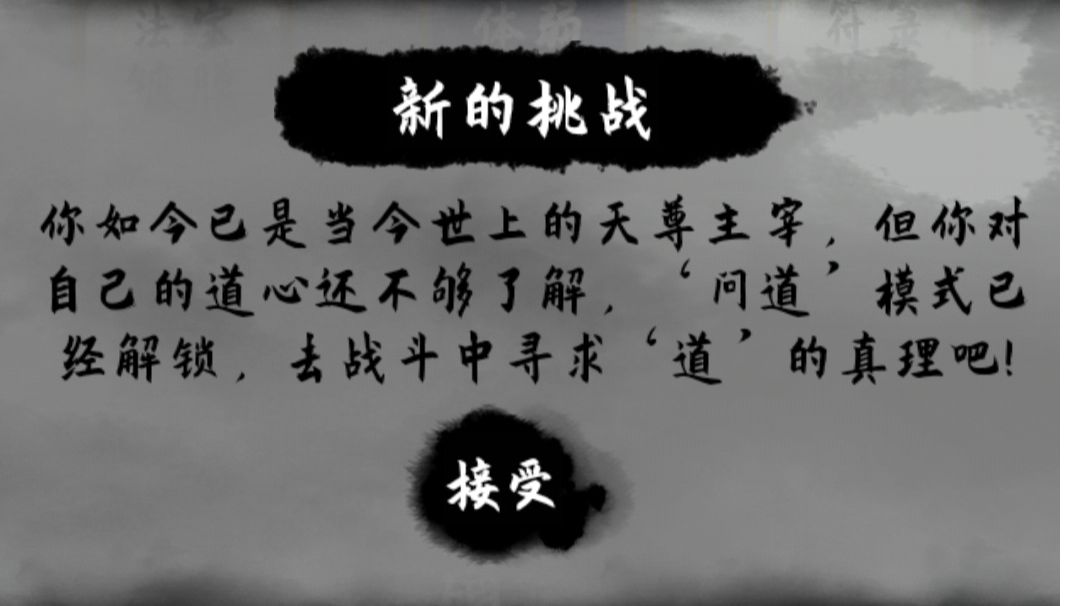 新的挑战
你如今已是当今世上的天尊主宰，但你对
自己的道心还不够了解，‘问道’模式已
经解锁，去战斗中寻求‘道’的真理吧！
接受